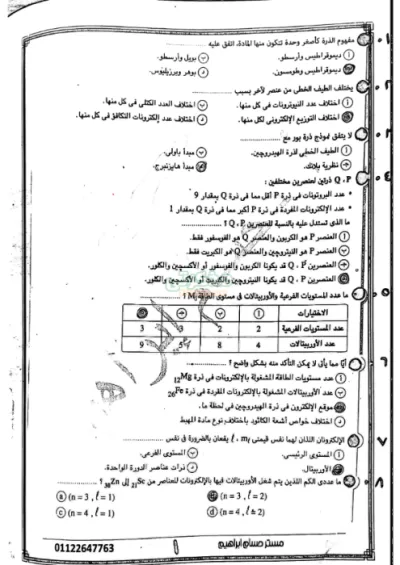 مفهوم الذرة كأصغر وحدة تتكون منها المادة، اتفق عليه
أ ديموقراطيس وأرسطو.
ب بويل وأرسطو.
ج ديموقراطيس وطومسون.
د بوهر وبرزيليوس.
يختلف الطيف الخطى من عنصر لآخر بسبب
أ اختلاف عدد النيوترونات فى كل منها.
ب اختلاف العدد الكتلى فى كل منها.
اختلاف التوزيع الإلكترونى لكل منها.
د اختلاف عدد إلكترونات التكافؤ فى كل منها.
لا يتفق نموذج ذرة بور مع
أ الطيف الخطى لذرة الهيدروچين.
ب مبدأ باولى.
ج نظرية بلانك.
مبدأ هايزنبرج.
Q ، P ذرتين لعنصرين مختلفين :
• عدد البروتونات فى ذرة P أقل مما فى ذرة Q بمقدار 9
• عدد الإلكترونات المفردة فى ذرة P أكبر مما فى ذرة Q بمقدار 1
ما الذى تستدل عليه بالنسبة للعنصرين Q ، P ؟
أ العنصر P هو الكربون والعنصر Q هو الفوسفور فقط.
ب العنصر P هو النيتروچين والعنصر Q هو الكبريت فقط.
ج العنصرين Q ، P قد يكونا الكربون والفوسفور أو الأكسچين والكلور.
العنصرين Q ، P قد يكونا النيتروچين والكبريت أو الأكسچين والكلور.
ما عدد المستويات الفرعية والأوربيتالات فى مستوى الطاقة M ؟
الاختيارات أ ب ج
عدد المستويات الفرعية 2 2 3 3
عدد الأوربيتالات 4 8 5 9
أيًا مما يأتى لا يمكن التأكد منه بشكل واضح ؟
أ عدد مستويات الطاقة المشغولة بالإلكترونات فى ذرة 12Mg
ب عدد الأوربيتالات المشغولة بالإلكترونات المفردة فى ذرة 26Fe
موقع الإلكترون فى ذرة الهيدروچين فى لحظة ما.
د اختلاف خواص أشعة الكاثود باختلاف نوع مادة المهبط
الإلكترونان اللذان لهما نفس قيمتى mℓ ، ℓ يقعان بالضرورة فى نفس
أ المستوى الرئيسى.
ب المستوى الفرعى.
الأوربيتال.
د ذرات عناصر الدورة الواحدة.
ما عددى الكم اللذين يتم شغل الأوربيتالات فيها بالإلكترونات للعناصر من 21Sc إلى 30Zn ؟
a (n = 3 , ℓ = 1)
(n = 3 , ℓ = 2)
c (n = 4 , ℓ = 1)
d (n = 4 , ℓ = 2)
01122647763
مستر حسام ابراهيم